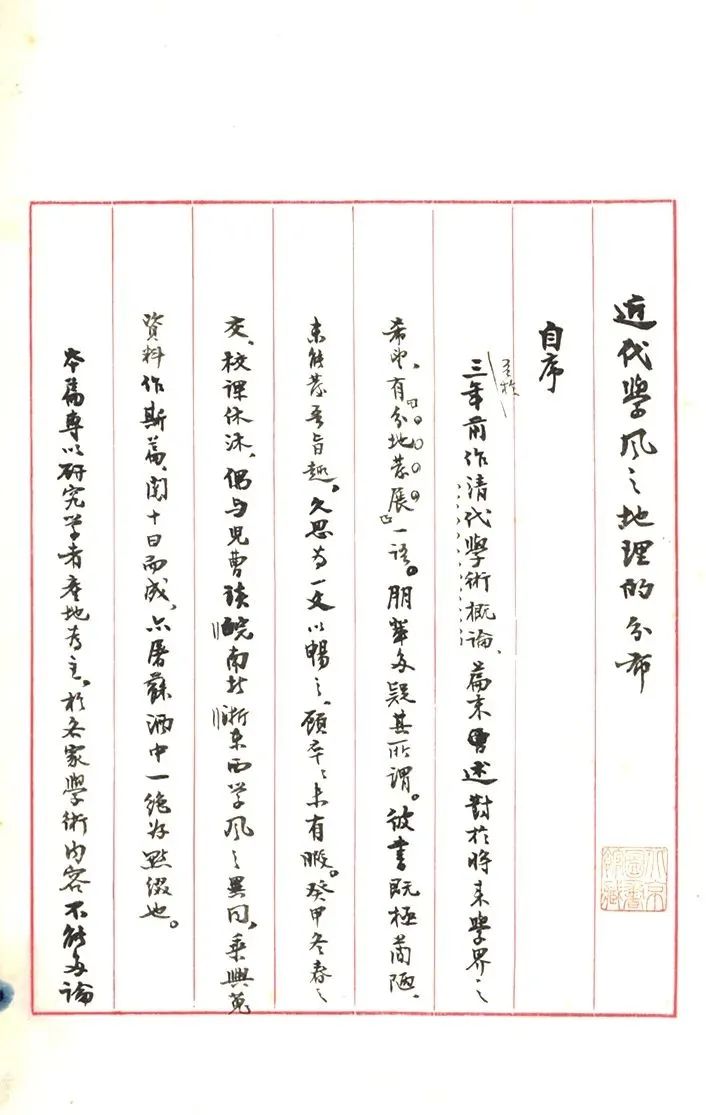 近代學風之地理的分布
自序
三年前作清代學術概論、篇末述對於將來學界之
希望、有分地發展一語。朋輩多疑其所謂。彼書既極簡陋、
未能發吾旨趣。久思為一文以暢之、顧卒卒未有暇。癸甲冬春之
交、校課休沐、偶与兒曹談皖南北浙东西学風之異同、乘興蒐
資料作斯篇、閱十日而成、亦屠蘇酒中一絕好點綴也。
本篇專以研究学者產地為主、於各家學術內容不能多論
北京圖書館藏